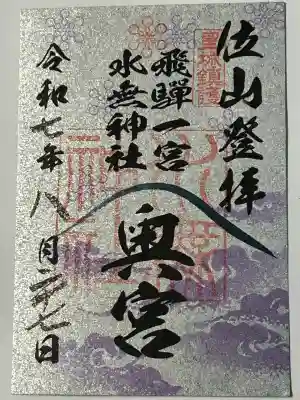 位山登拝
飛騨一宮
水無神社
奥宮
令和七年八月二十七日